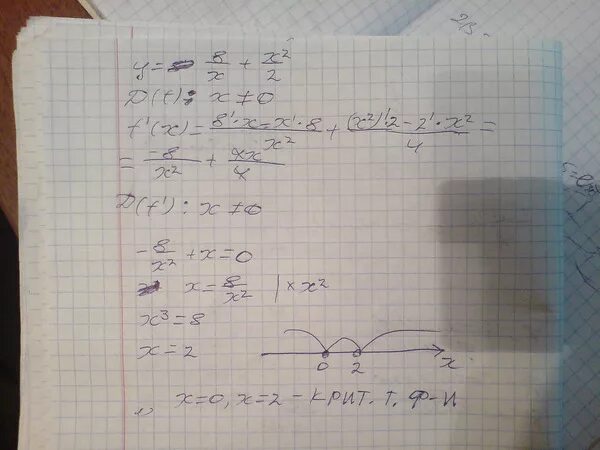 2B
y = 8/x + x²/2
D(f): x ≠ 0
f'(x) = (8'·x - x'·8)/x² + ((x²)'·2 - 2'·x²)/4 =
= -8/x² + 4x/4
D(f'): x ≠ 0
-8/x² + x = 0
x = 8/x² | × x²
x³ = 8
x = 2
0 2 x
x=0, x=2 - КРИТ. Т. Ф-И